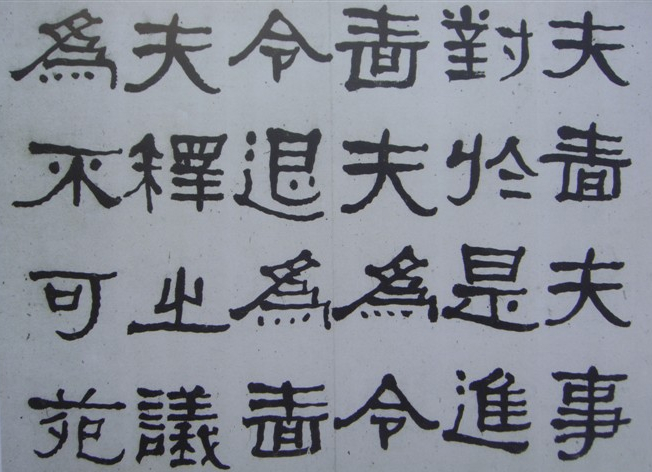 夫嗇夫事
對於是進
嗇夫爲令
令退爲嗇
夫釋之議
爲不可苑